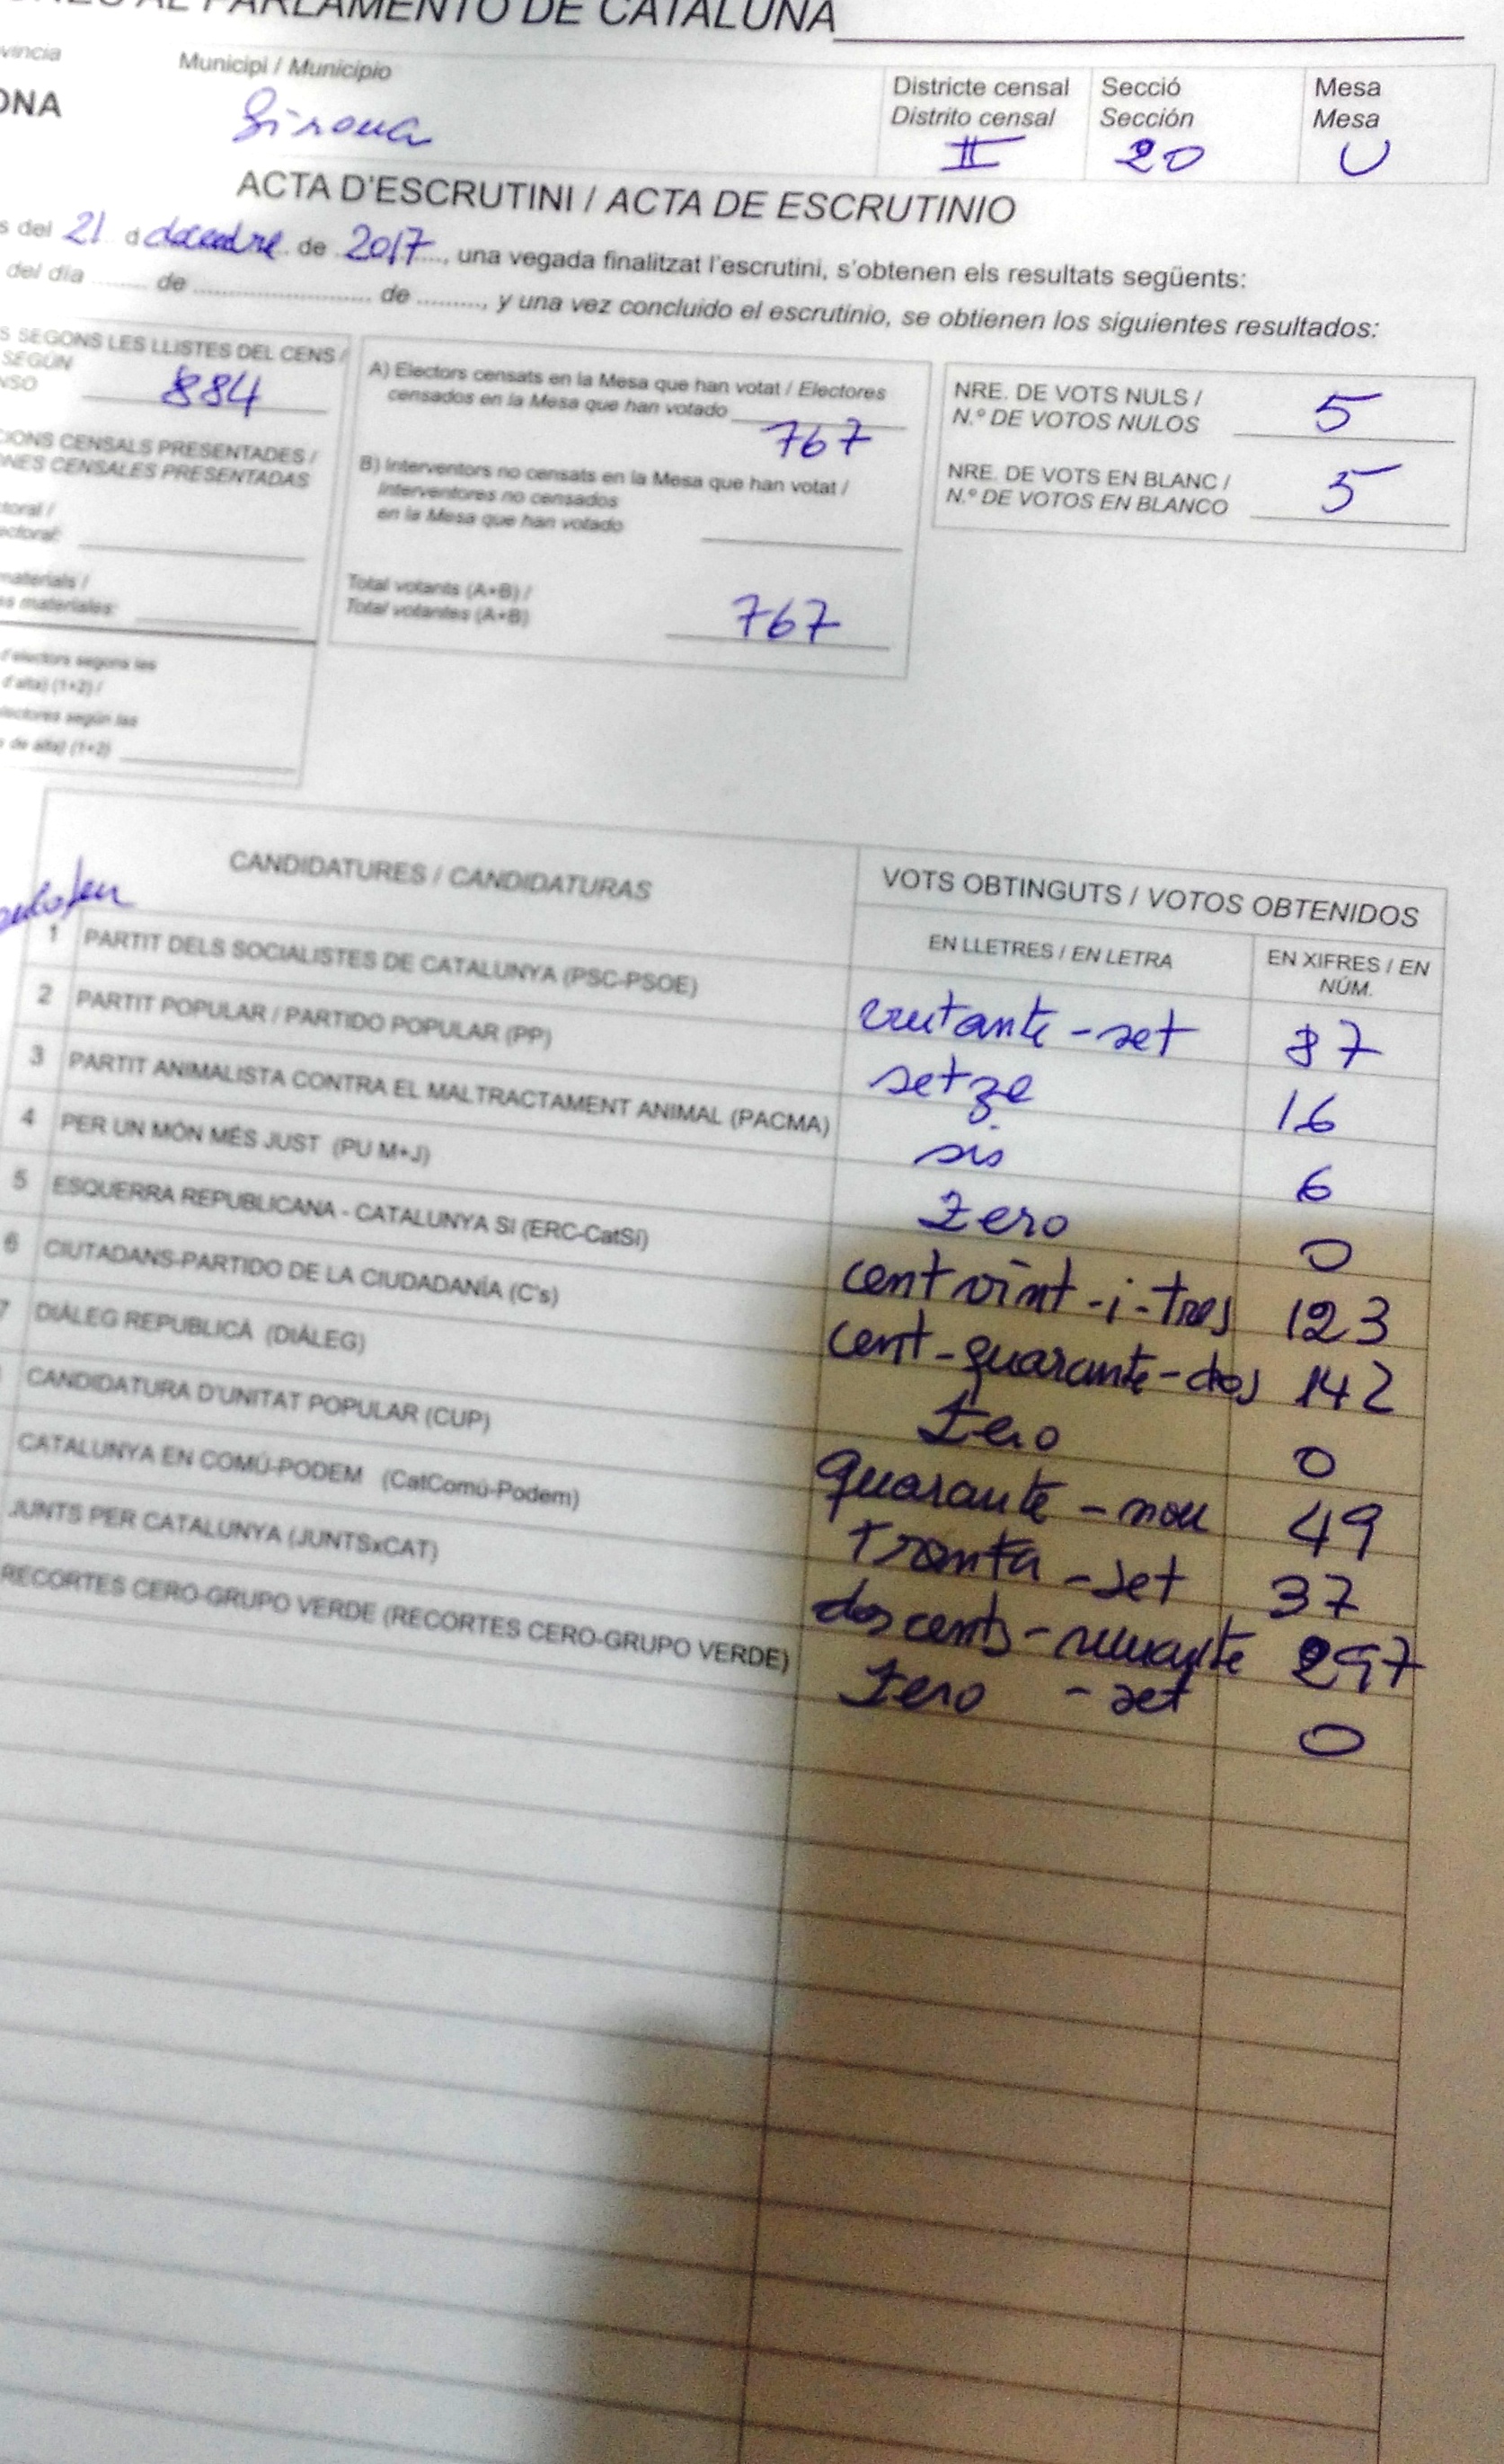 PARLAMENTO DE CATALUÑA
Municipi / Municipio
Girona
Districte censal
Distrito censal
II
Secció
Sección
20
Mesa
Mesa
U
ACTA D'ESCRUTINI / ACTA DE ESCRUTINIO
del 21 d desembre de 2017, una vegada finalitzat l'escrutini, s'obtenen els resultats següents:
del día ........ de ........................ de .........., y una vez concluido el escrutinio, se obtienen los siguientes resultados:
SEGONS LES LLISTES DEL CENS /
SEGÚN
884
CENSALS PRESENTADES /
CENSALES PRESENTADAS
materials /
materiales:
d'electors segons les
d'alta) (1+2) /
según las
de alta) (1+2)
A) Electors censats en la Mesa que han votat / Electores
censados en la Mesa que han votado
767
B) Interventors no censats en la Mesa que han votat /
Interventores no censados
en la Mesa que han votado
Total votants (A+B) /
Total votantes (A+B)
767
NRE. DE VOTS NULS /
N.º DE VOTOS NULOS
5
NRE. DE VOTS EN BLANC /
N.º DE VOTOS EN BLANCO
5
CANDIDATURES / CANDIDATURAS
VOTS OBTINGUTS / VOTOS OBTENIDOS
EN LLETRES / EN LETRA
EN XIFRES / EN
NÚM.
1 PARTIT DELS SOCIALISTES DE CATALUNYA (PSC-PSOE)
vuitante-set 87
2 PARTIT POPULAR / PARTIDO POPULAR (PP)
setze 16
3 PARTIT ANIMALISTA CONTRA EL MALTRACTAMENT ANIMAL (PACMA)
sis 6
4 PER UN MÓN MÉS JUST (PU M+J)
Zero 0
5 ESQUERRA REPUBLICANA - CATALUNYA SI (ERC-CatSí)
cent vint-i-tres 123
6 CIUTADANS-PARTIDO DE LA CIUDADANÍA (C's)
cent-quarante-dos 142
7 DIÀLEG REPUBLICÀ (DIÀLEG)
Zero 0
CANDIDATURA D'UNITAT POPULAR (CUP)
quarante-nou 49
CATALUNYA EN COMÚ-PODEM (CatComú-Podem)
Tranta-set 37
JUNTS PER CATALUNYA (JUNTSxCAT)
doscents-nuuante 297
-set
RECORTES CERO-GRUPO VERDE (RECORTES CERO-GRUPO VERDE)
Zero 0